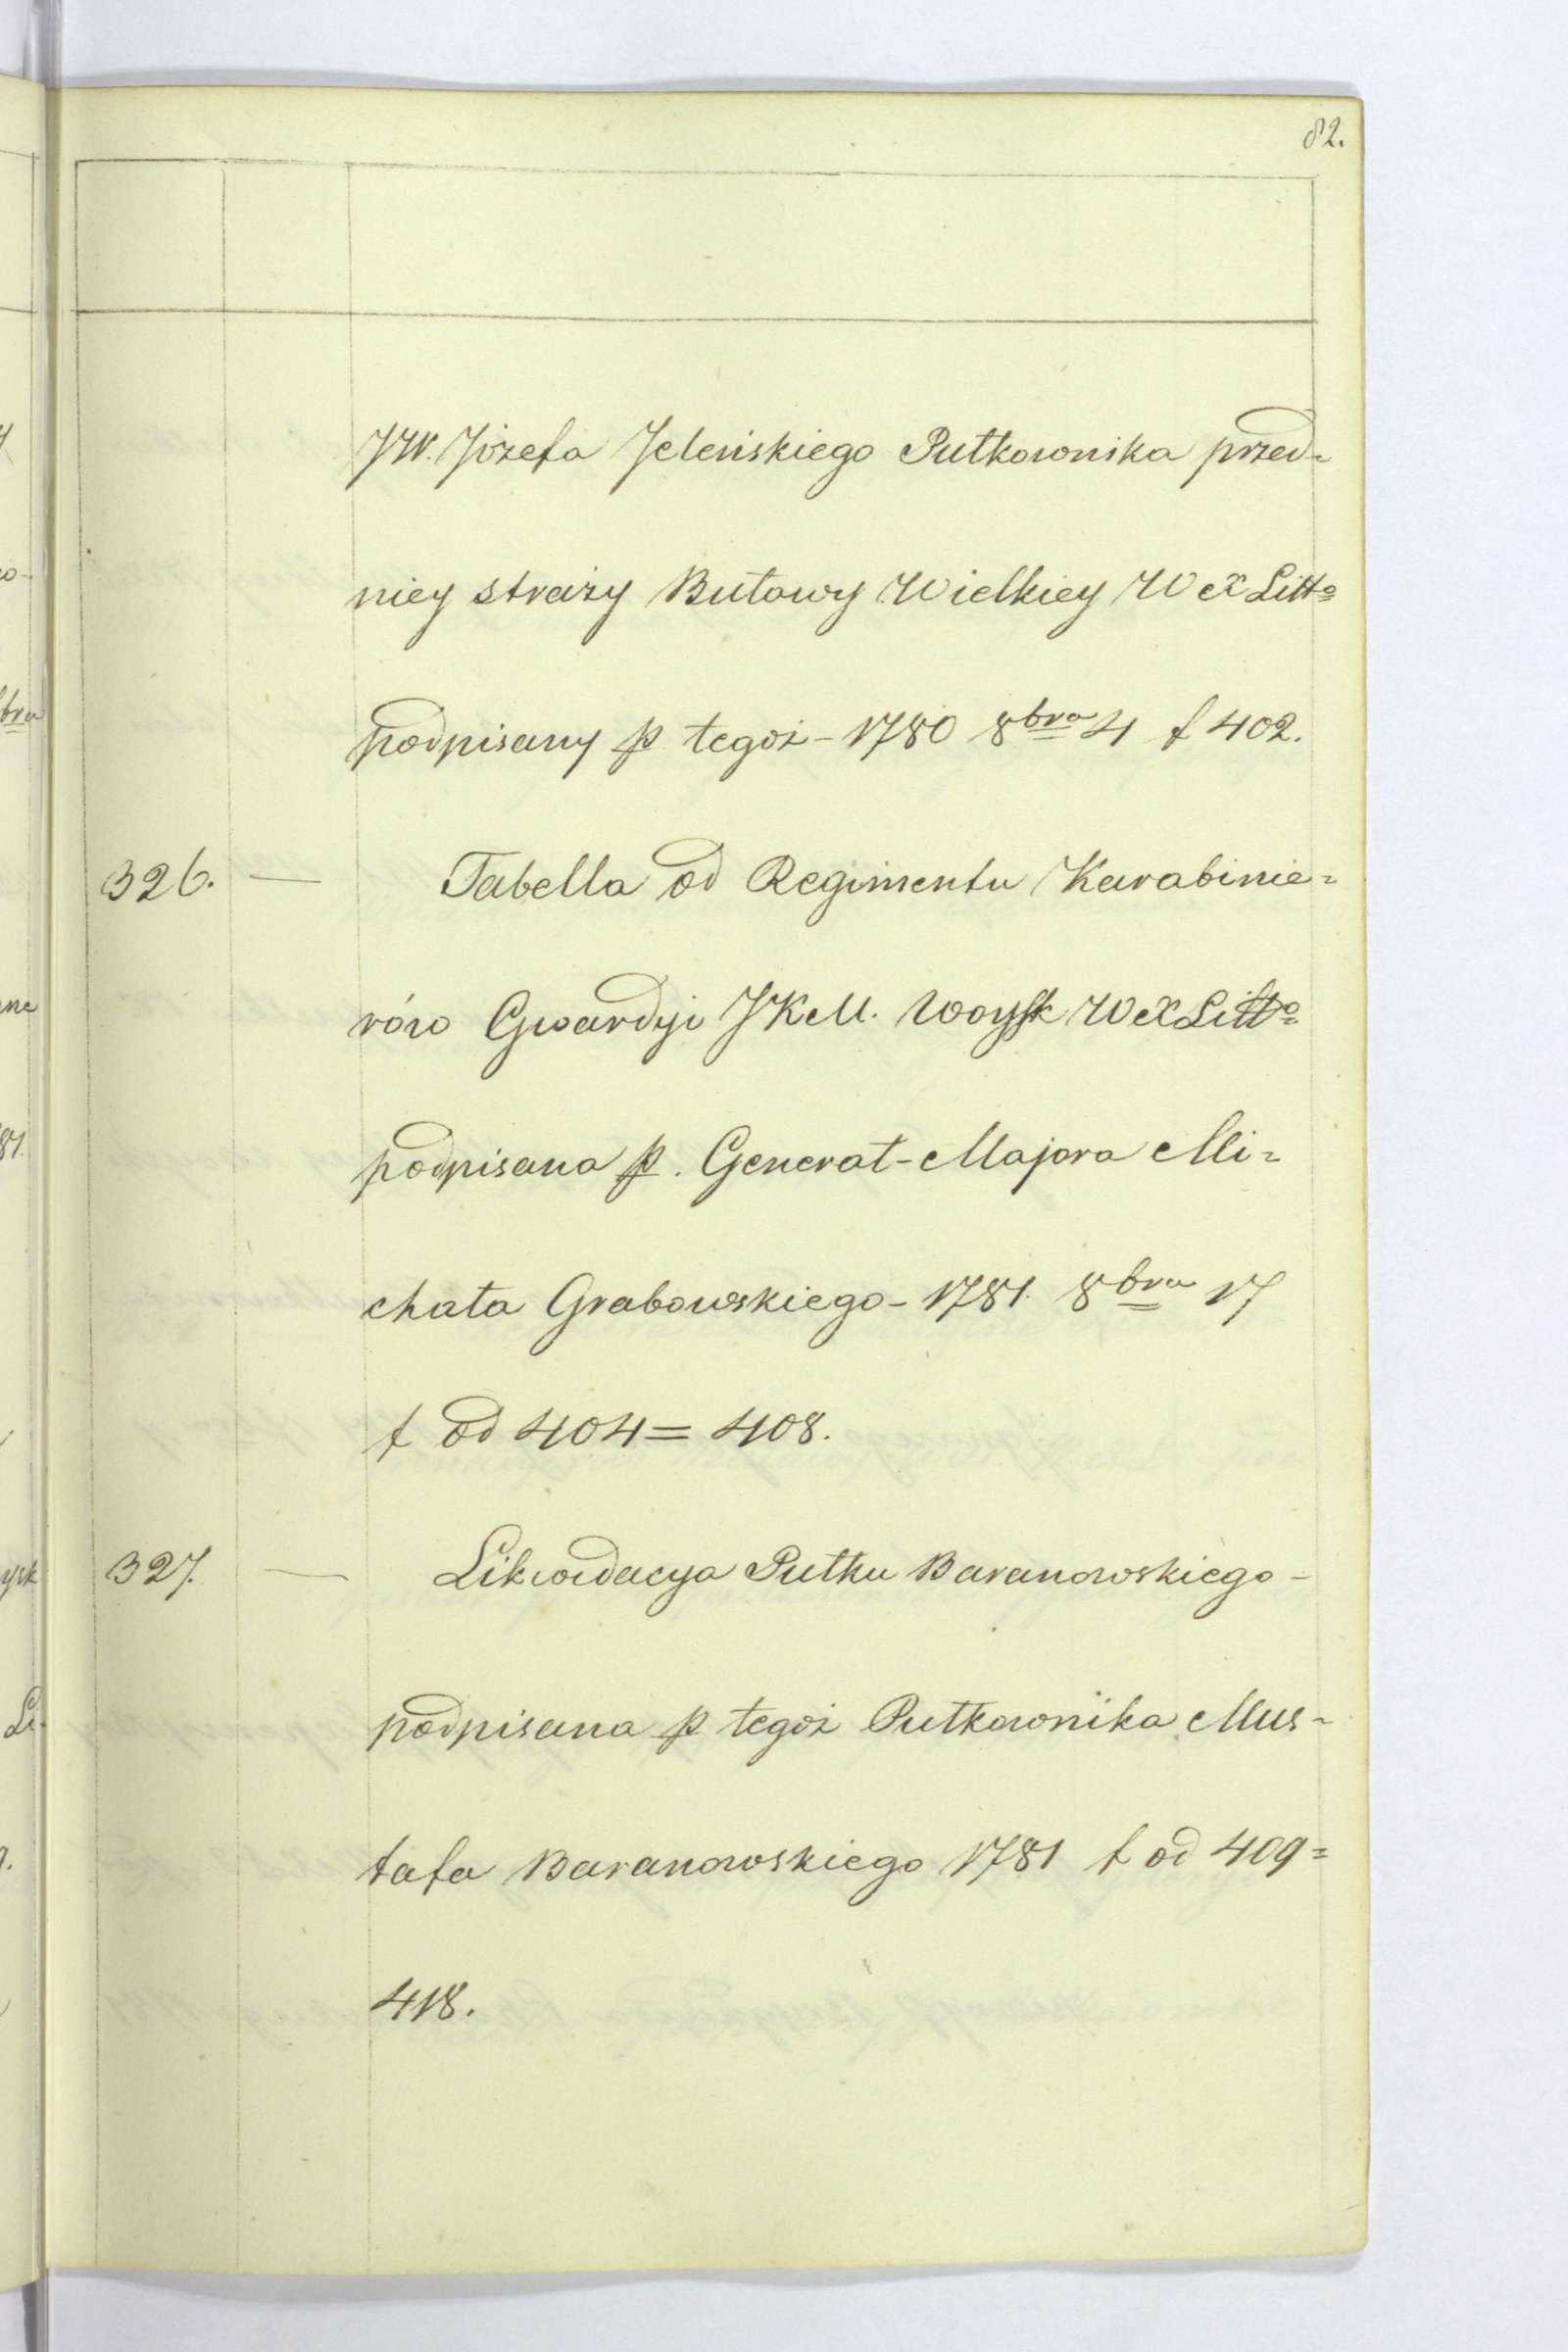 82.
JW. Józefa Jeleńskiego Pułkownika przed=
niey straży Buławy Wielkiey W X Litt<sup>o</sup>
podpisany p tegoż - 1780 8<sup>bra</sup> 4 f 402.
326. — Tabella od Regimentu Karabinie=
rów Gwardyi JKM. Woysk W X Litt<sup>o</sup>
podpisana p. Generał-Majora Mi=
chała Grabowskiego - 1781. 8<sup>bra</sup> 17
f od 404 = 408.
327. — Likwidacya Pułku Baranowskiego -
podpisana p tegoż Pułkownika Mus=
tafa Baranowskiego 1781 f od 409 =
418.